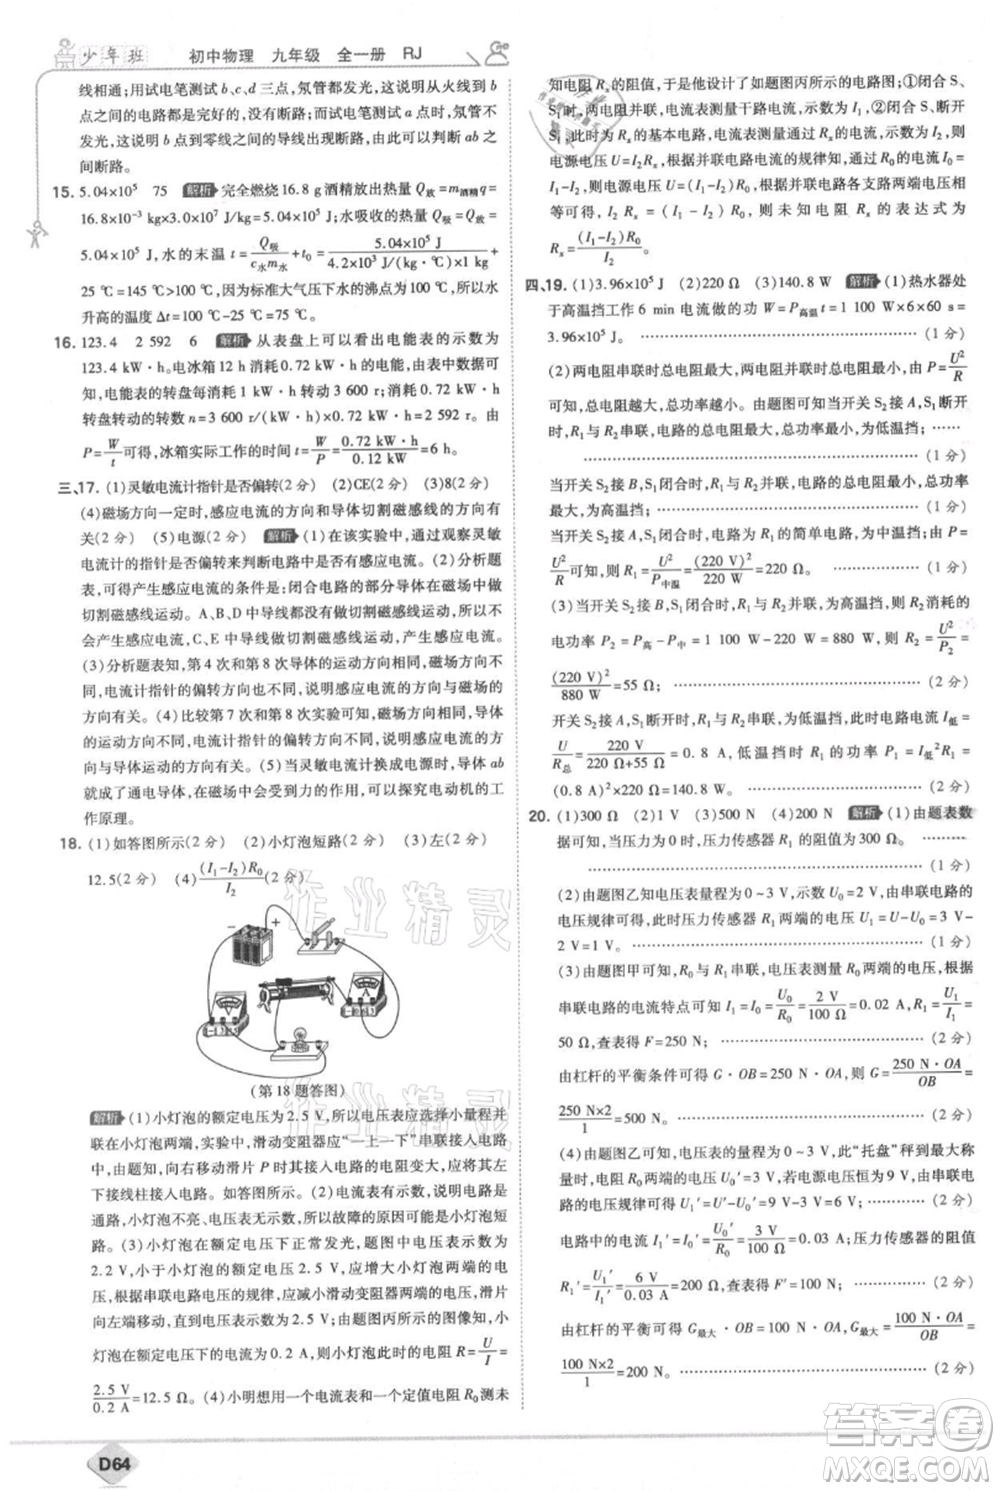 少年班 初中物理 九年级 全一册 RJ
线相通；用试电笔测试 b、c、d 三点，氖管都发光，说明 b
点之间的电路都是完好的，没有断路。而试电笔测试 a 点时，氖管
不发光，说明 b 点到零线之间的导线出现断路。故可以判断 ab 之
间断路。
15. 5.04×10⁵ 75 解析 完全燃烧 16.8 g 酒精放出热量 Q放=m酒精q=
16.8×10⁻³ kg×3.0×10⁷ J/kg=5.04×10⁵ J；水吸收的热量 Q吸=Q放=
5.04×10⁵ J，水的末温 t=Q吸/(c水m水)+t₀=5.04×10⁵ J/(4.2×10³ J/(kg·℃)×
25 ℃=145 ℃>100 ℃，因为标准大气压下水的沸点为 100 ℃，所以水
升高的温度 Δt=100 ℃-25 ℃=75 ℃。
16. 123.4 2 592 6 解析 从表盘上可以看出电能表的示数为
123.4 kW·h；电冰箱 12 h 消耗 0.72 kW·h 的电能；由表中数据可知，
电能表的转盘每消耗 1 kW·h 转动 3 600 r，则消耗 0.72 kW·h 电能
转盘转动的转数 n=3 600 r/(kW·h)×0.72 kW·h=2 592 r。由
P=W/t 可得，冰箱实际工作的时间 t=W/P=0.72 kW·h/0.12 kW=6 h。
三、17. (1)灵敏电流计指针是否偏转(2 分) (2)CE(2 分) (3)8(2 分)
(4)磁场方向一定时，感应电流的方向和导体切割磁感线的方向有
有关(2 分) (5)电源(2 分) 解析 (1)在该实验中，用观察灵敏
电流计的指针是否偏转来判断电路中是否有感应电流。(2)分析题表
可得产生感应电流的条件是：闭合电路的部分导体在磁场中做
切割磁感线运动。A、B、D 中导体都没有做切割磁感线运动，所以不
会产生感应电流，C、E 中导体做切割磁感线运动，产生感应电流。
(3)分析题表知，第 4 次和第 8 次导体的运动方向相同，磁场方向不
同，电流计指针的偏转方向也不同，说明感应电流的方向与磁场方向
有关。(4)比较第 7 次和第 8 次实验可知，磁场方向相同，导体
的运动方向不同，电流计指针的偏转方向不同，说明感应电流的方向
与导体运动方向有关。(5)当灵敏电流计换成电源时，导体 ab
就成了通电导体，在磁场中会受到力的作用，可以探究电动机的工
作原理。
18. (1)如答图所示(2 分) (2)小灯泡短路(2 分) (3)左(2 分)
12.5(2 分) (4)(I₁-I₂)R₀/I₂(2 分)
(第 18 题答图)
解析 (1)小灯泡的额定电压为 2.5 V，所以电压表应选择小量程与并
联在小灯泡两端，实验中，滑动变阻器应“一上一下”串联接入电路
中，且在闭合开关前滑动变阻器滑片 P 时，接入电路的电阻变大，故应把
下接线柱接入电路。如答图所示。(2)电流表有示数，说明电路是
通路，小灯泡不亮、电压表无示数，所以故障的原因可能是小灯泡短
路。(3)小灯泡在额定电压下正常发光，题图中电压表的示数为
2.2 V，小于小灯泡的额定电压 2.5 V，应增大小灯泡两端的电压，
根据串联电路电压的规律，应减小滑动变阻器两端的电压，故滑片
应向左移动，直到电压表示数为 2.5 V；由题图丙所示的图像知，小
灯泡在额定电压下的电流为 0.2 A，则小灯泡正常发光时的电阻 R=U/I=
2.5 V/0.2 A=12.5 Ω。(4)小明想用一个电流表和一个定值电阻 R₀测未
知电阻 Rₓ 的阻值，于是他设计了如题图丙所示的电路图：①闭合 S、
S₁时，两电阻并联，电流表测量干路电流，示数为 I₁；②闭合 S、断开
S₁，此时为 Rₓ 的基本电路，电流表测量通过 Rₓ 的电流，示数为 I₂，则
电源电压 U=I₂Rₓ；根据并联电路电流的规律知，通过 R₀ 的电流 I₀=
I₁-I₂，则电源电压 U=(I₁-I₂)R₀，根据并联电路各支路两端电压相
等可得，I₂Rₓ=(I₁-I₂)R₀，则未知电阻 Rₓ 的表达式为
Rₓ=(I₁-I₂)R₀/I₂。
四、19. (1)3.96×10⁵ J (2)220 Ω (3)140.8 W 解析 (1)热水器处
于高温挡工作 6 min 电流做的功 W=P高温t=1 100 W×6×60 s=
3.96×10⁵ J。 (1 分)
(2)两电阻串联时总电阻最大，两电阻并联时总电阻最小，由 P=U²/R
可知，总电阻越大，总功率越小。由题图可知当开关 S₂接A、S₁断开时
时，R₁与 R₂ 串联，电路的总电阻最大，总功率最小，为低温挡；
(1 分)
当开关 S₂接 B、S₁闭合时，R₁与 R₂并联，电路的总电阻最小，总功率最大，为高温挡；
当开关 S₂接 A、S₁闭合时，电路为 R₁的简单电路，为中温挡；由 P=
U²/R 可知，R₁=U²/P中温=(220 V)²/220 W=220 Ω。 (2 分)
(3)当开关S₂接B、S₁闭合时，R₁与R₂并联，为高温挡，则 R₂消耗的
电功率 P₂=P高-P中=1 100 W-220 W=880 W，则 R₂=U²/P₂=
(220 V)²/880 W=55 Ω； (2 分)
开关 S₂接A、S₁断开时，R₁与 R₂串联，为低温挡，此时电路电流 I低=
U/R总=220 V/(220 Ω+55 Ω)=0.8 A，低温挡时 R₁的功率 P₁=I低²R₁=
(0.8 A)²×220 Ω=140.8 W。 (2 分)
20. (1)300 Ω (2)1 V (3)500 N (4)200 N 解析 (1)由题表数
据可知，当压力为 0 时，压力传感器 R₁ 的阻值为 300 Ω。
(1 分)
(2)由题图乙知电压表量程为 0～3 V，示数 U₀=2 V，由串联电路的
电压规律可得，此时压力传感器 R₁ 两端的电压 U₁=U-U₀=3 V-
2 V=1 V。 (1 分)
(3)由题图甲可知，R₀与 R₁ 串联，电压表测量 R₀ 两端的电压，根据
串联电路的电流特点可知 I₁=I₀=U₀/R₀=2 V/100 Ω=0.02 A，R₁=U₁/I₁=
50 Ω，查表得 F=250 N； (2 分)
由杠杆的平衡条件可得 G·OB=F·OA，则 G=250 N·OA/OB=
250 N×2/1=500 N。 (1 分)
(4)由题图乙可知，电压表的量程为 0～3 V，所以“托盘”秤到最大称
量时，电阻 R₀两端的电压 U₀′=3 V，当电源电压恒为 9 V，由串联电
路的电压规律可得 U₁′=U′-U₀′=9 V-3 V=6 V，
电路中的电流 I′=U₀′/R₀=3 V/100 Ω=0.03 A，压力传感器的阻值
R₁′=U₁′/I′=6 V/0.03 A=200 Ω，查表得 F′=100 N， (2 分)
由杠杆的平衡可得 G最大·OB=F′·OA，G最大=100 N·OA/OB=
100 N×2/1=200 N。 (2 分)
D64
作业精灵
答案圈
MXQE.COM